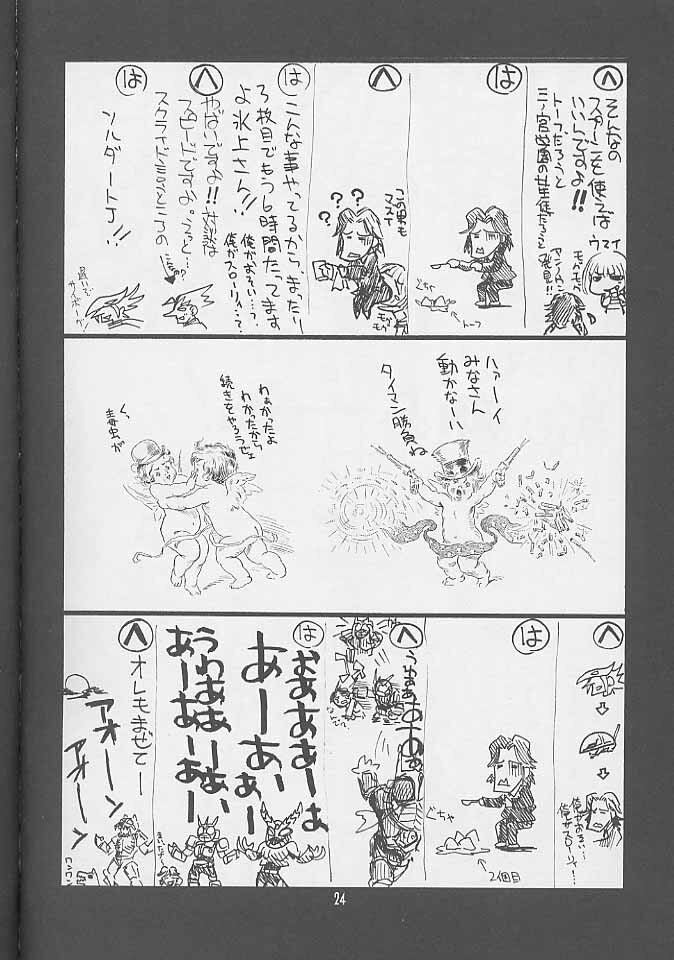 へ
そんなの
スターンを使えば
いいんですよ!!
トーフだろうと
三ノ宮学園の生徒だろうと
ウマイ
モグモグ
発見!!
は
ぐちゃ
トーフ
へ
この男も
マズイ
???
モグモグ
は
こんな事やってるから、まったー
3枚目でもう6時間たってます
よ氷上さん!!
俺がおそい…?
俺がスローリィ…?
へ
やばいですよ!!対談は
スピードですよ。えっと…
スクライド言うところの
は
ソルダートJ!!
ハァーイ
みなさん
動かなーい
タイマン勝負ね
わぁかったよ
わかったから
続きをやろうぜ
く、
毒虫が
へ
俺がおそい…
俺がスローリィ…?
は
ぐちゃ
2個目
へ
うわぁぁあーあー
は
おぁああーぁ
あーあぁー
うわぁあーぁぁ、
あーあーあー
へ
オレもまぜてー
アオーン
アオーン
24